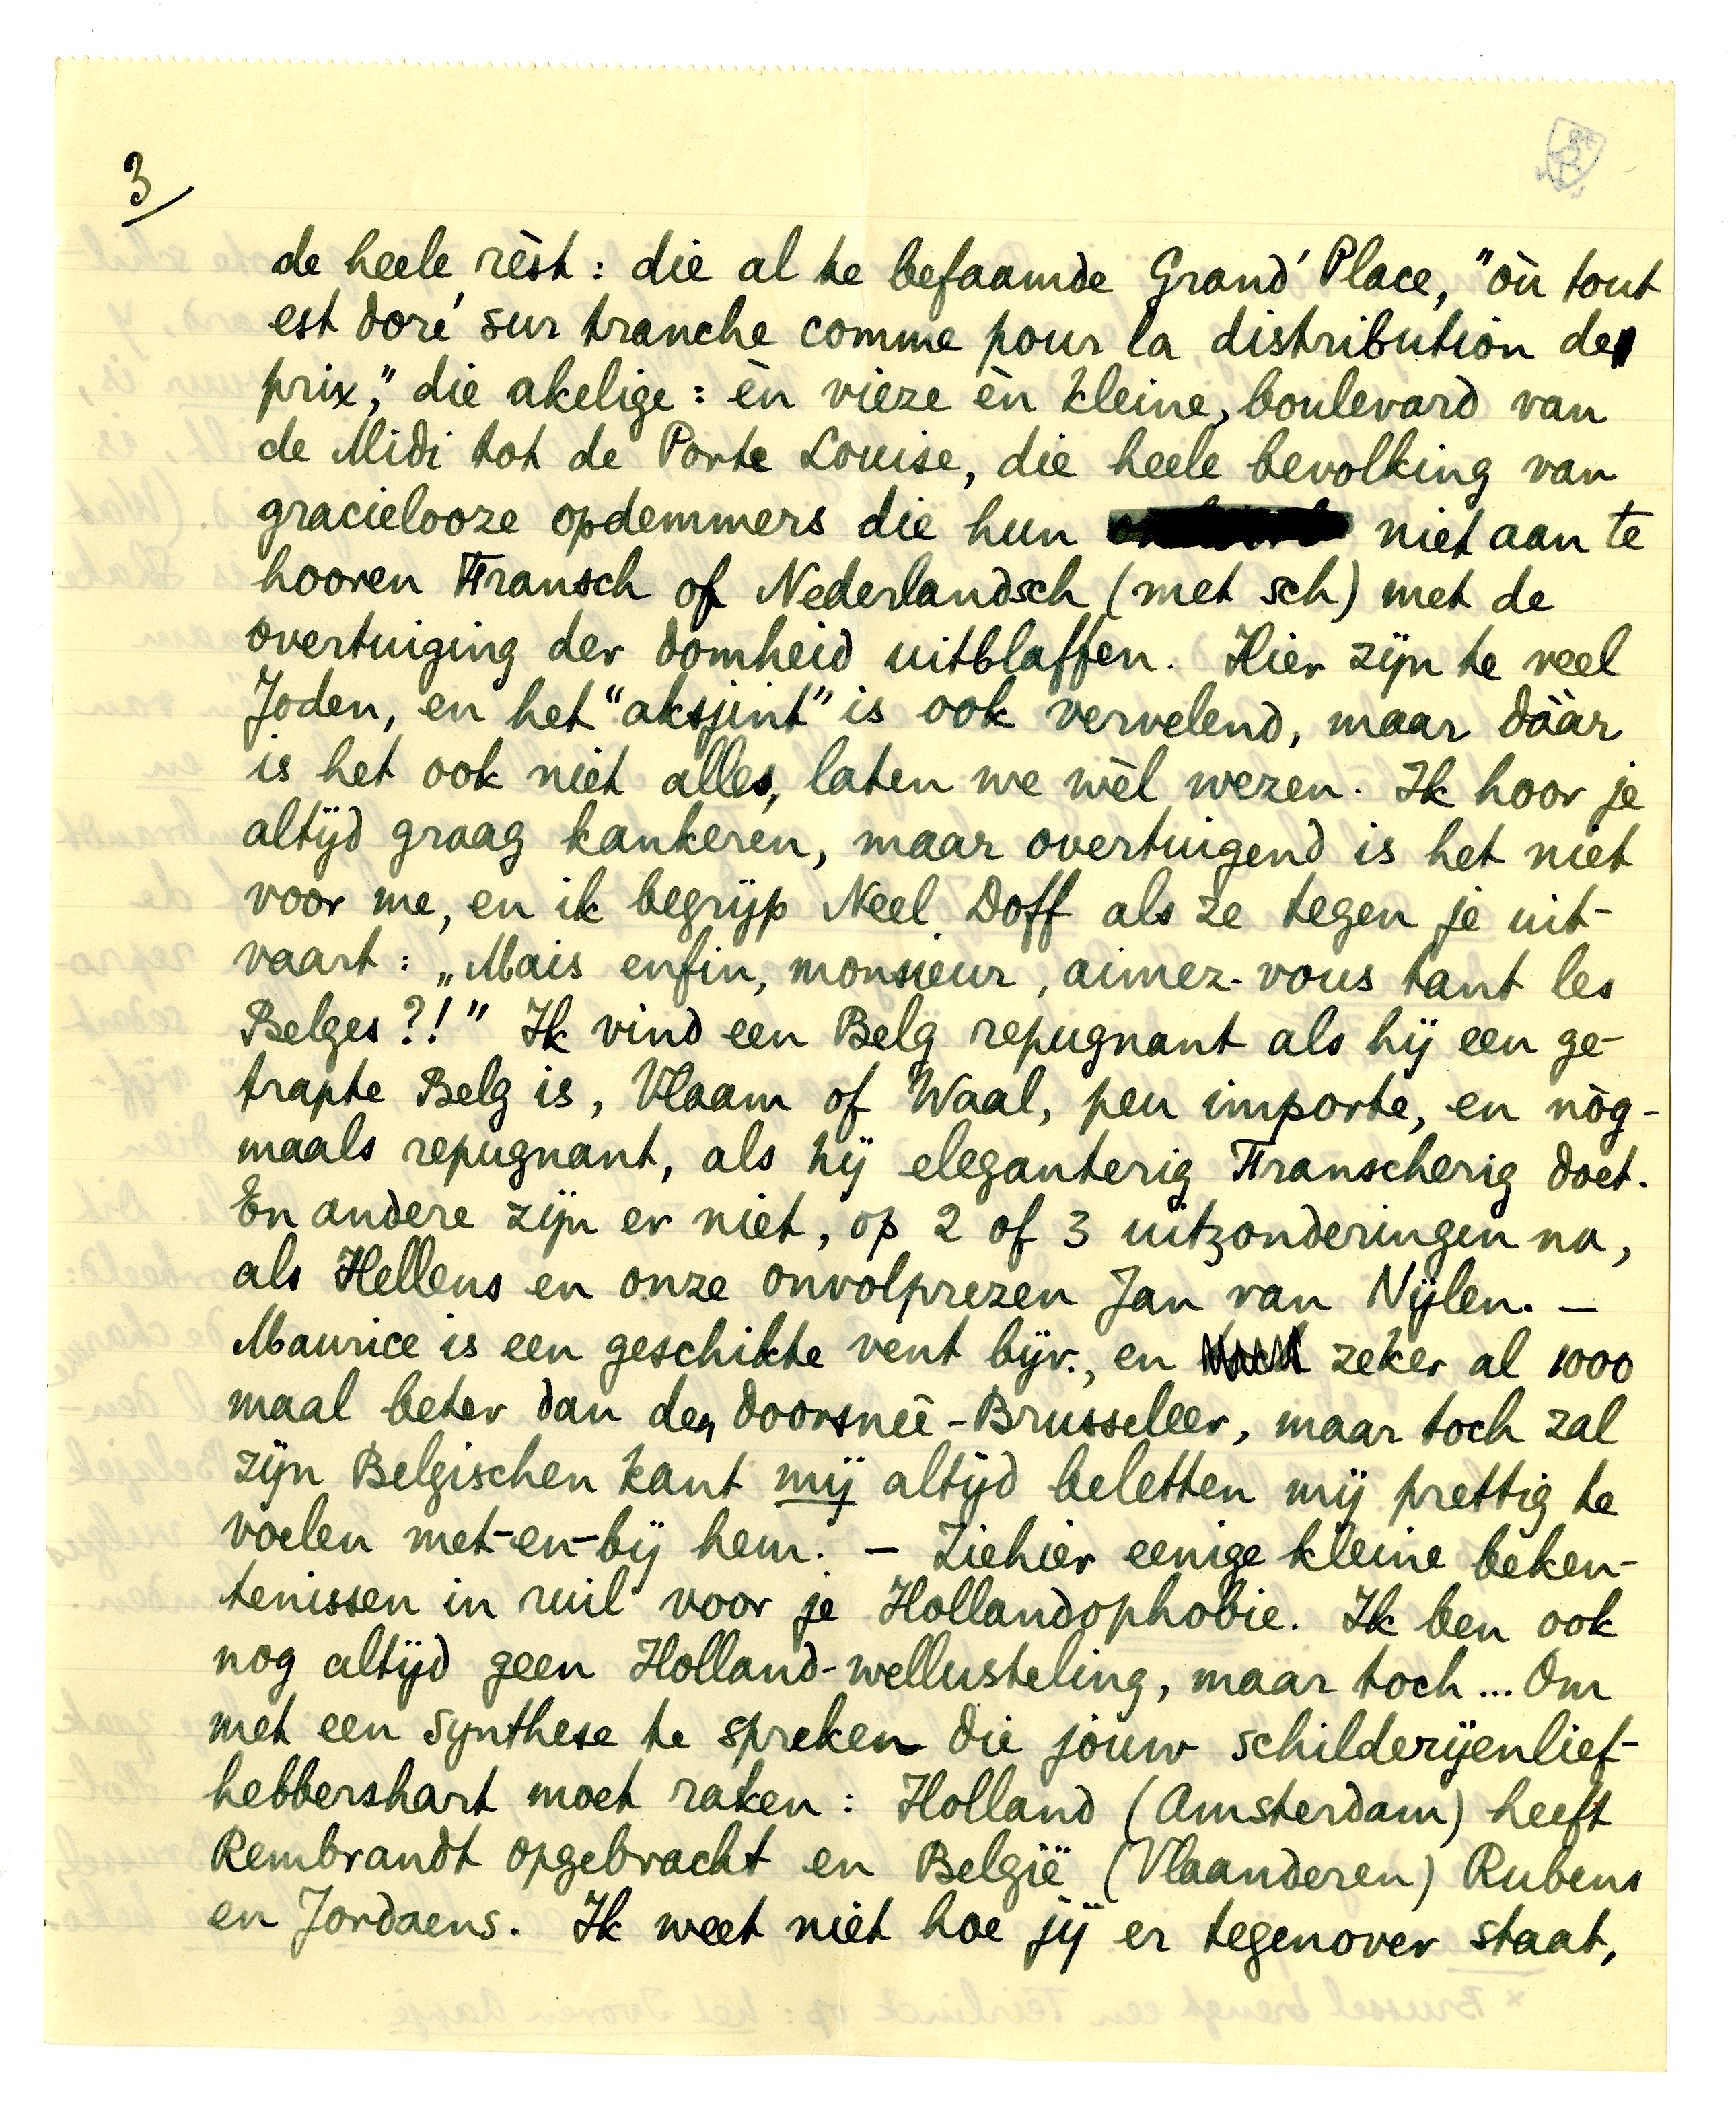 3/
de heele rèst: die al te befaamde Grand' Place, "où tout
est doré sur tranche comme pour la distribution de
prix," die akelige: èn vieze èn kleine, boulevard van
de Midi tot de Porte Louise, die heele bevolking van
gracielooze opdemmers die hun niet aan te
hooren Fransch of Nederlandsch (met sch) met de
overtuiging der domheid uitblaffen. Hier zijn te veel
Joden, en het "aksjint" is ook vervelend, maar dààr
is het ook niet alles, laten we wèl wezen. Ik hoor je
altijd graag kankeren, maar overtuigend is het niet
voor me, en ik begrijp Neel Doff als ze tegen je uit-
vaart: „Mais enfin, monsieur, aimez-vous tant les
Belges?!" Ik vind een Belg repugnant als hij een ge-
trapte Belg is, Vlaam of Waal, peu importe, en nòg-
maals repugnant, als hij eleganterig Franscherig doet.
En andere zijn er niet, op 2 of 3 uitzonderingen na,
als Hellens en onze onvolprezen Jan van Nijlen. —
Maurice is een geschikte vent bijv., en zeker al 1000
maal beter dan de doorsneê-Brusseleer, maar toch zal
zijn Belgischen kant mij altijd beletten mij prettig te
voelen met-en-bij hem. — Ziehier eenige kleine beken-
tenissen in ruil voor je Hollandophobie. Ik ben ook
nog altijd geen Holland-wellusteling, maar toch... Om
met een synthese te spreken die jouw schilderijenlief-
hebbershart moet raken: Holland (Amsterdam) heeft
Rembrandt opgebracht en België (Vlaanderen) Rubens
en Jordaens. Ik weet niet hoe jij er tegenover staat,